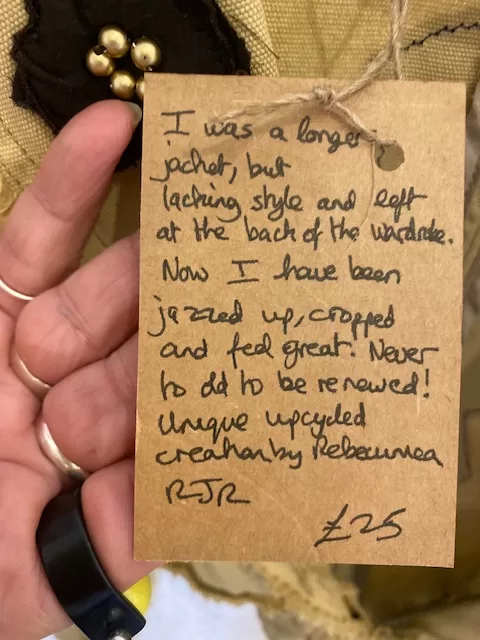 I was a longer
jacket, but
lacking style and left
at the back of the wardrobe.
Now I have been
jazzed up, cropped
and feel great! Never
to old to be renewed!
Unique upcycled
creation by
RJR
£25